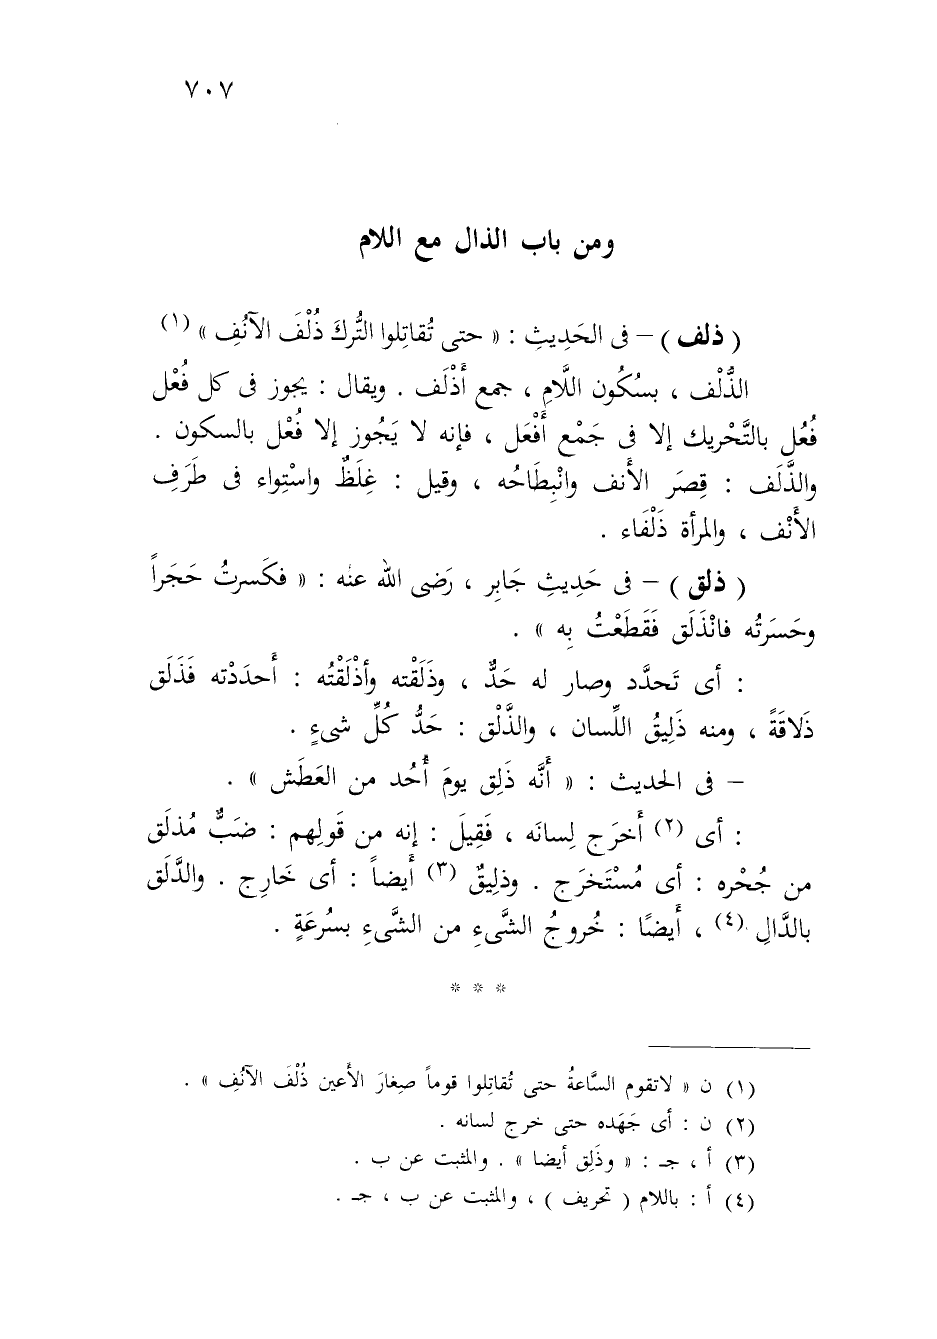 ٧٠٧
ومن باب الذال مع اللام
( ذلف ) – فى الحَدِيثِ : « حتى تُقاتِلوا التُّركَ ذُلْفَ الآنُفِ » (١)
الذُّلْف ، بسُكُون اللَّامِ ، جمع أَذْلَف . ويقال : يجوز فى كل فُعْل
فُعُل بالتَّحْريك إلا فى جَمْع أَفْعَل ، فإنه لا يَجُوز إلا فُعْل بالسكون .
والذَّلَف : قِصَر الأنف وانْبِطَاحُه ، وقيل : غِلَظٌ واسْتِواء فى طَرَفِ
الأَنْف ، والمرأة ذَلْفَاء .
( ذلق ) – فى حَدِيثِ جَابِر ، رَضى الله عنه : « فكَسرتُ حَجَراً
وحَسَرتُه فانْذَلَق فَقَطَعْتُ بِه » .
: أى تَحدَّد وصار له حَدٌّ ، وذَلَقْته وأذْلَقْتُه : أَحدَدْته فَذَلَق
ذَلاقَةً ، ومنه ذَلِيقُ اللِّسان ، والذَّلْق : حَدُّ كُلِّ شىءٍ .
– فى الحديث : « أَنَّه ذَلِق يومَ أُحُد من العَطَش » .
: أى (٢) أَخرَج لِسانَه ، فَقِيلَ : إنه من قَولِهم : ضَبٌّ مُذلَق
من جُحْره : أى مُسْتَخرَج . وذلِيقٌ (٣) أَيضاً : أى خَارِج . والدَّلَق
بالدَّالِ (٤) ، أَيضًا : خُروجُ الشَّىءِ من الشَّىءِ بسرُعَةٍ .
* * *
(١) ن « لاتقوم السَّاعةُ حتى تُقاتِلوا قوماً صِغارَ الأَعين ذُلْفَ الآنُفِ » .
(٢) ن : أى جَهَده حتى خرج لسانه .
(٣) أ ، جـ : « وذَلِق أيضا » . والمثبت عن ب .
(٤) أ : باللام ( تحريف ) ، والمثبت عن ب ، جـ .